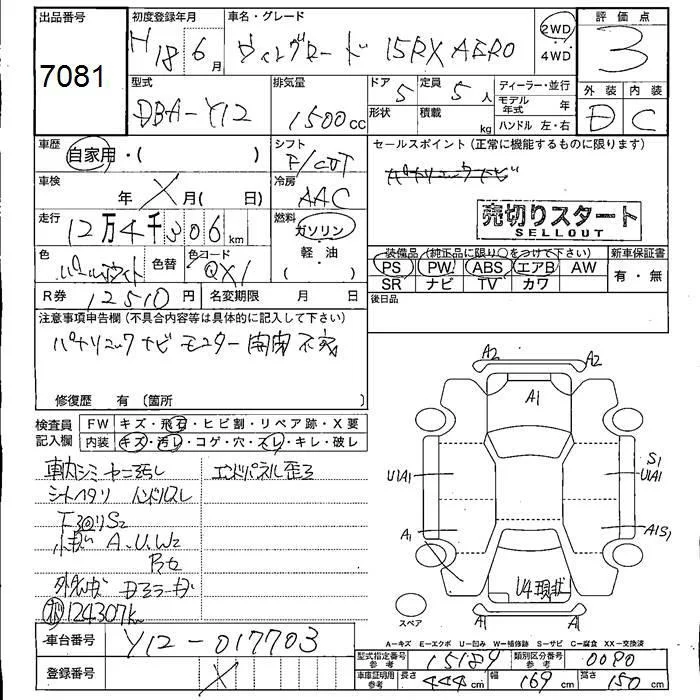 出品番号 7081
初度登録年月 H18 6月
車名・グレード ウィングロード 15RX AERO
2WD・4WD
評価点 3
外装 D 内装 C
型式 DBA-Y12
排気量 1500cc
ドア 5 形状
定員 5人 積載 kg
ディーラー・並行
モデル年式 年
ハンドル 左・右
車歴 自家用・( )
シフト F/CVT
セールスポイント(正常に機能するものに限ります)
パナソニックナビ
車検 年 X 月( 日)
冷房 AAC
売切りスタート
SELLOUT
走行 12万4千306km
燃料 ガソリン・軽油
色 パールホワイト 色替 色コード QX1
装備品(純正品に限り○をつけて下さい) 新車保証書
PS PW ABS エアB AW 有・無
SR ナビ TV カワ
R券 12510円 名変期限 月 日
後日品
注意事項申告欄(不具合内容等は具体的に記入して下さい)
パナソニック ナビ モニター 開閉 不良
修復歴 有(箇所 )
検査員記入欄 FW キズ・飛石・ヒビ割・リペア跡・X要
内装 キズ・汚レ・コゲ・穴・スレ・キレ・破レ
車内シミ ヤニ汚レ エンドパネル歪ミ
シートヘタリ ハンドルスレ
S2
A.U.W2
124307km
A2 A2
A1
U1A1
S1
U1A1
A1
A1S1
U4現状
A1 A1
スペア
A-キズ E-エクボ U-凹み W-補修跡 S-サビ C-腐食 XX-交換済
車台番号 Y12-017703
登録番号 X
型式指定番号 参考 15184 類別区分番号 参考 0090
車庫証明用 参考 長さ 444cm 幅 169cm 高さ 150cm